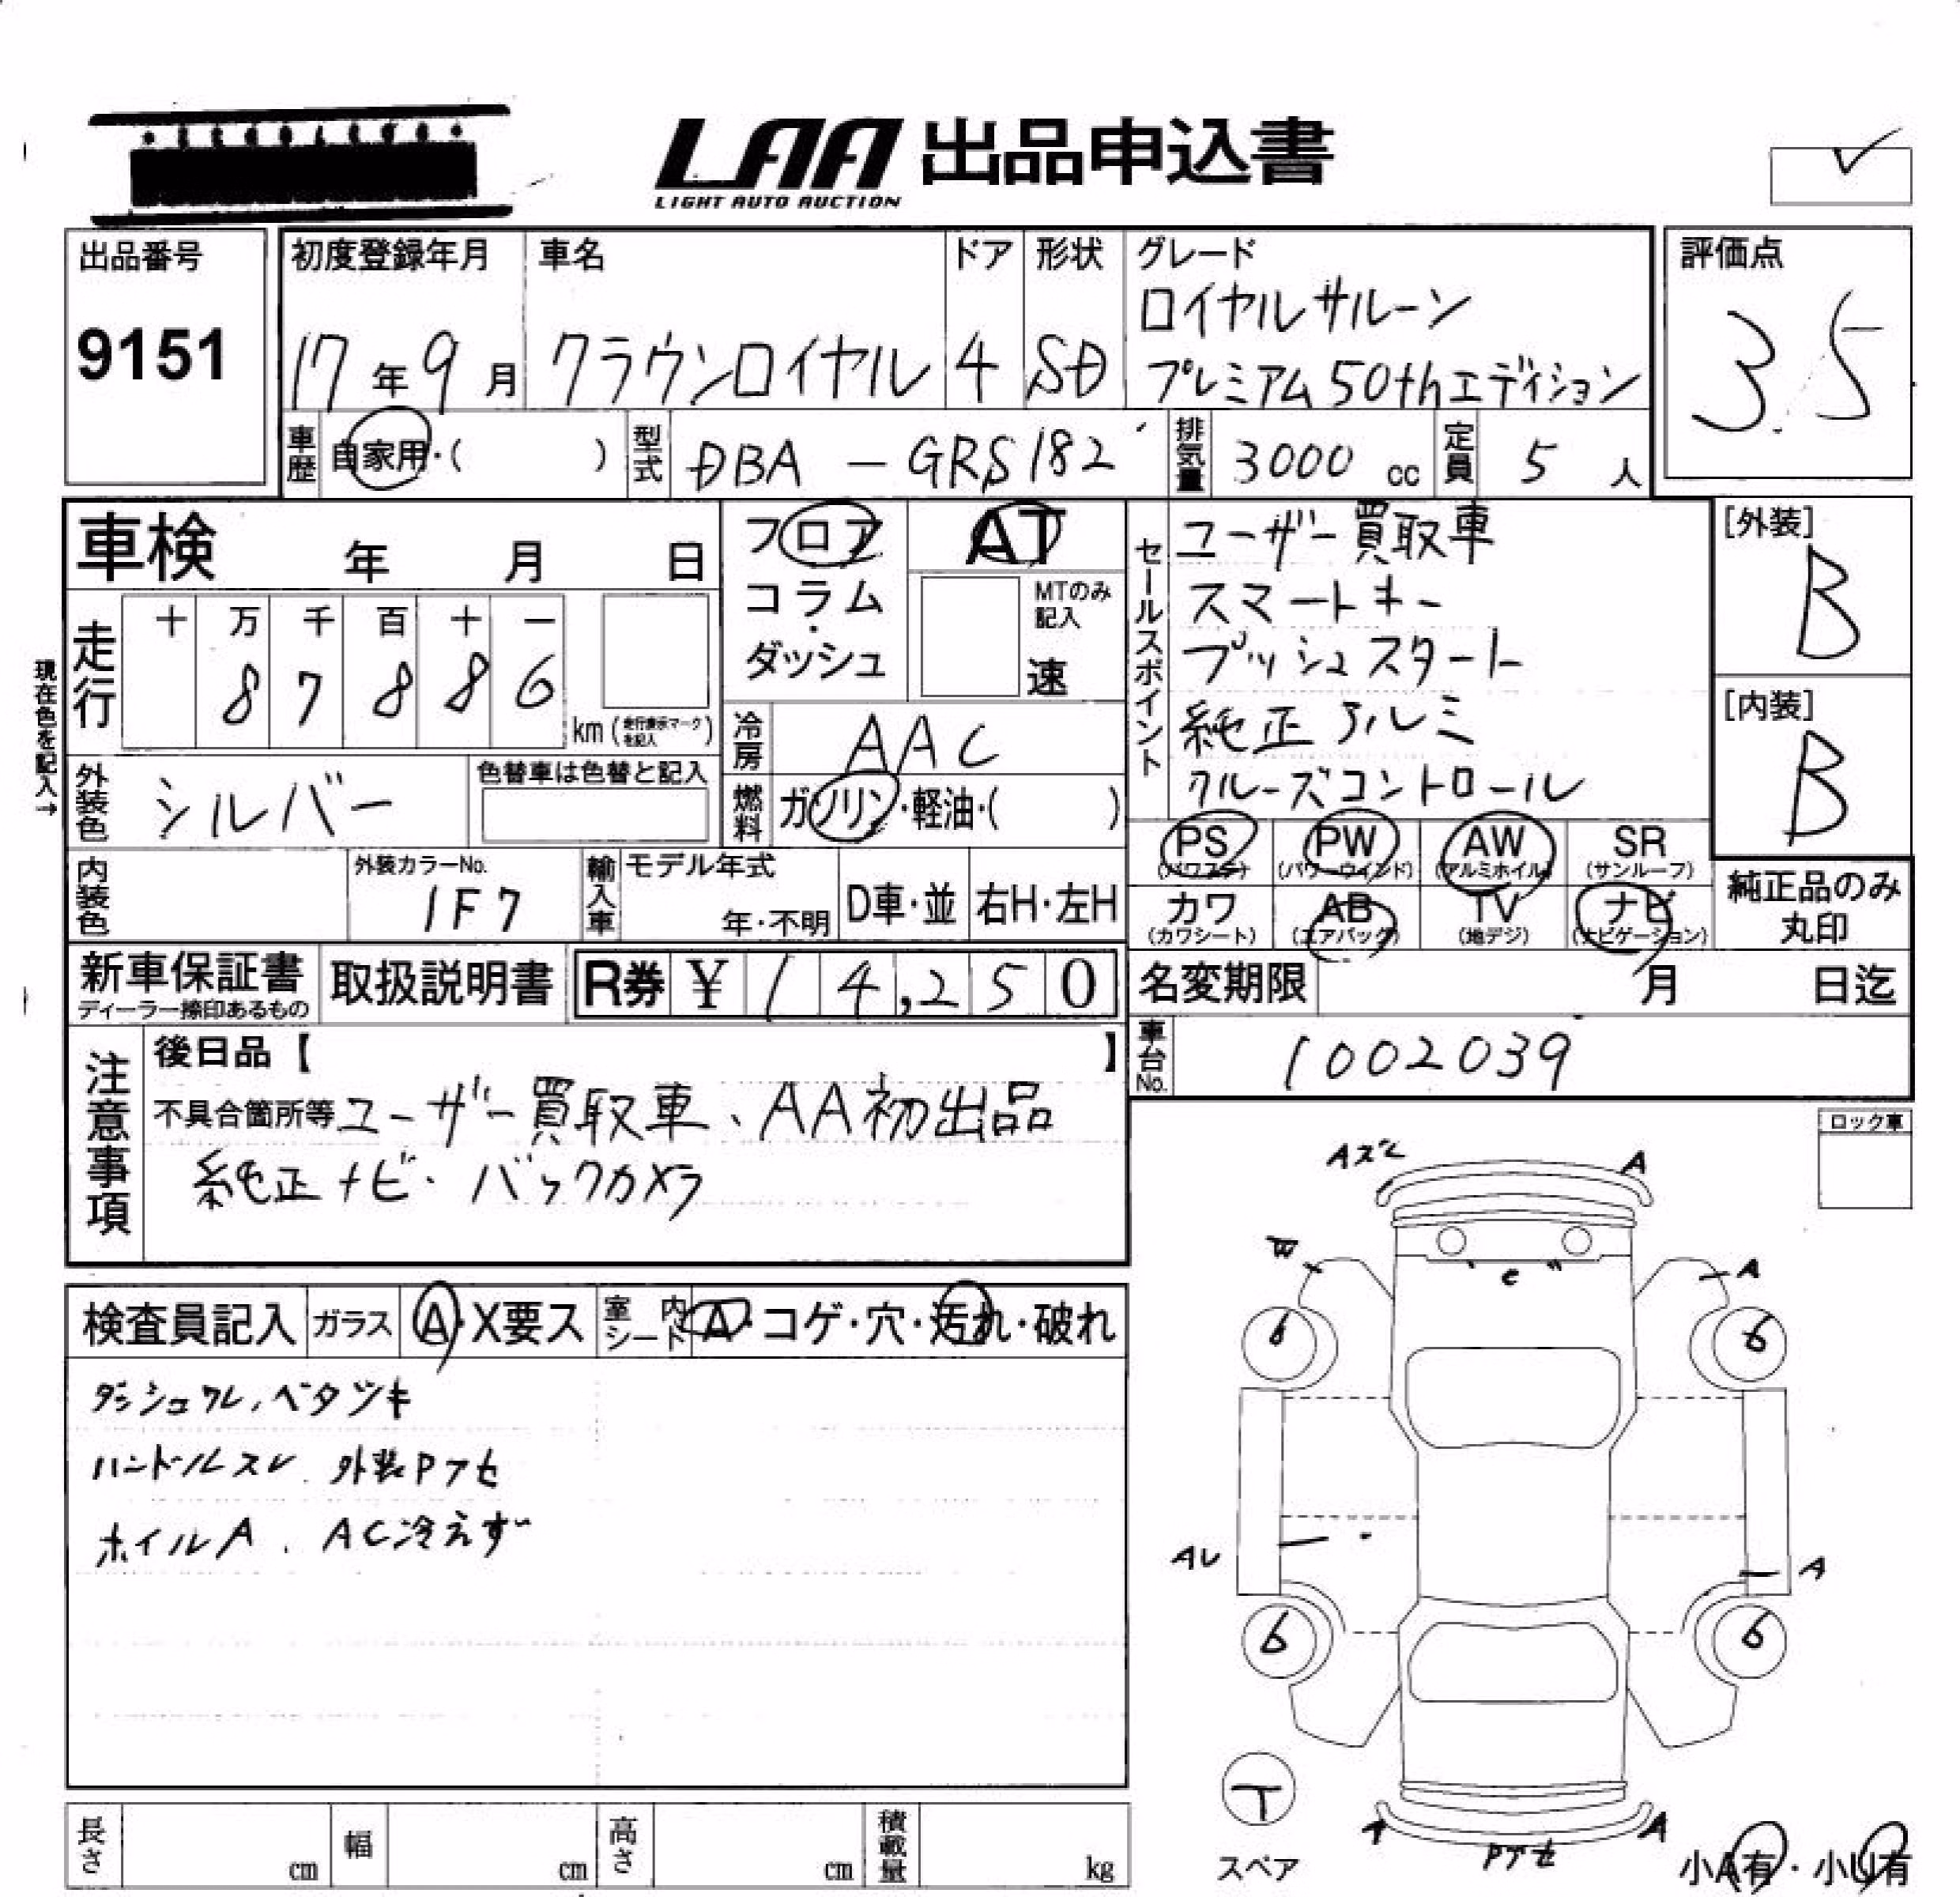 LAA 出品申込書
LIGHT AUTO AUCTION
出品番号
9151
初度登録年月
17年9月
車名
クラウンロイヤル
ドア
4
形状
SD
グレード
ロイヤルサルーン
プレミアム50thエディション
評価点
3.5
車歴 自家用・( )
型式 DBA-GRS182
排気量 3000cc
定員 5人
車検 年 月 日
現在色を記入→
走行 十 万 千 百 十 一
8 7 8 8 6
km(走行表示マークを記入)
フロア
コラム・
ダッシュ
AT
MTのみ記入
速
冷房 AAC
燃料 ガソリン・軽油・( )
セールスポイント
ユーザー買取車
スマートキー
プッシュスタート
純正アルミ
クルーズコントロール
[外装]
B
[内装]
B
外装色 シルバー
色替車は色替と記入
内装色
外装カラーNo.
1F7
輸入車
モデル年式
年・不明
D車・並
右H・左H
PS (パワステ)
PW (パワーウインド)
AW (アルミホイル)
SR (サンルーフ)
カワ (カワシート)
AB (エアバック)
TV (地デジ)
ナビ (ナビゲーション)
純正品のみ
丸印
新車保証書
ディーラー捺印あるもの
取扱説明書
R券 ¥14,250
名変期限 月 日迄
車台No. 1002039
注意事項
後日品【 】
不具合箇所等 ユーザー買取車、AA初出品
純正ナビ・バックカメラ
ロック車
検査員記入
ガラス A・X要ス
室内シート A・コゲ・穴・汚れ・破れ
ダッシュワレ、ベタツキ
ハンドルスレ、外装Pアセ
ホイルA、AC冷えず
Aスレ
A
W
A
C
6
6
AU
A
6
6
T
スペア
A
Pアセ
小A有・小U有
長さ cm
幅 cm
高さ cm
積載量 kg